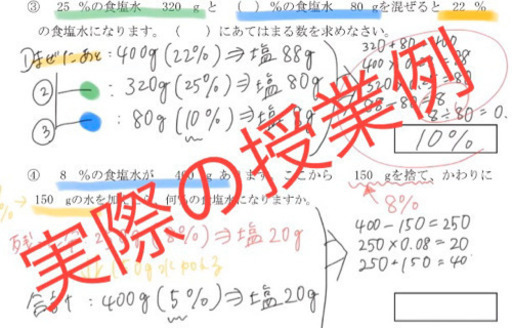 ③ 25 %の食塩水 320 g と ( )%の食塩水 80 gを混ぜると 22 %
の食塩水になります。( )にあてはまる数を求めなさい。
①まぜたあと:400g(22%)⇒塩88g
② 320g(25%)⇒塩80g
③ 80g(10%)⇒塩8g
320+80=400
8÷80=0.
10%
実際の授業例
④ 8 %の食塩水が 400 g あります。ここから 150 gを捨て、かわりに
150 gの水を加えると、何%の食塩水になりますか。
8%
400-150=250
250×0.08=20
250+150=40
合計:400g(5%)⇒塩20g